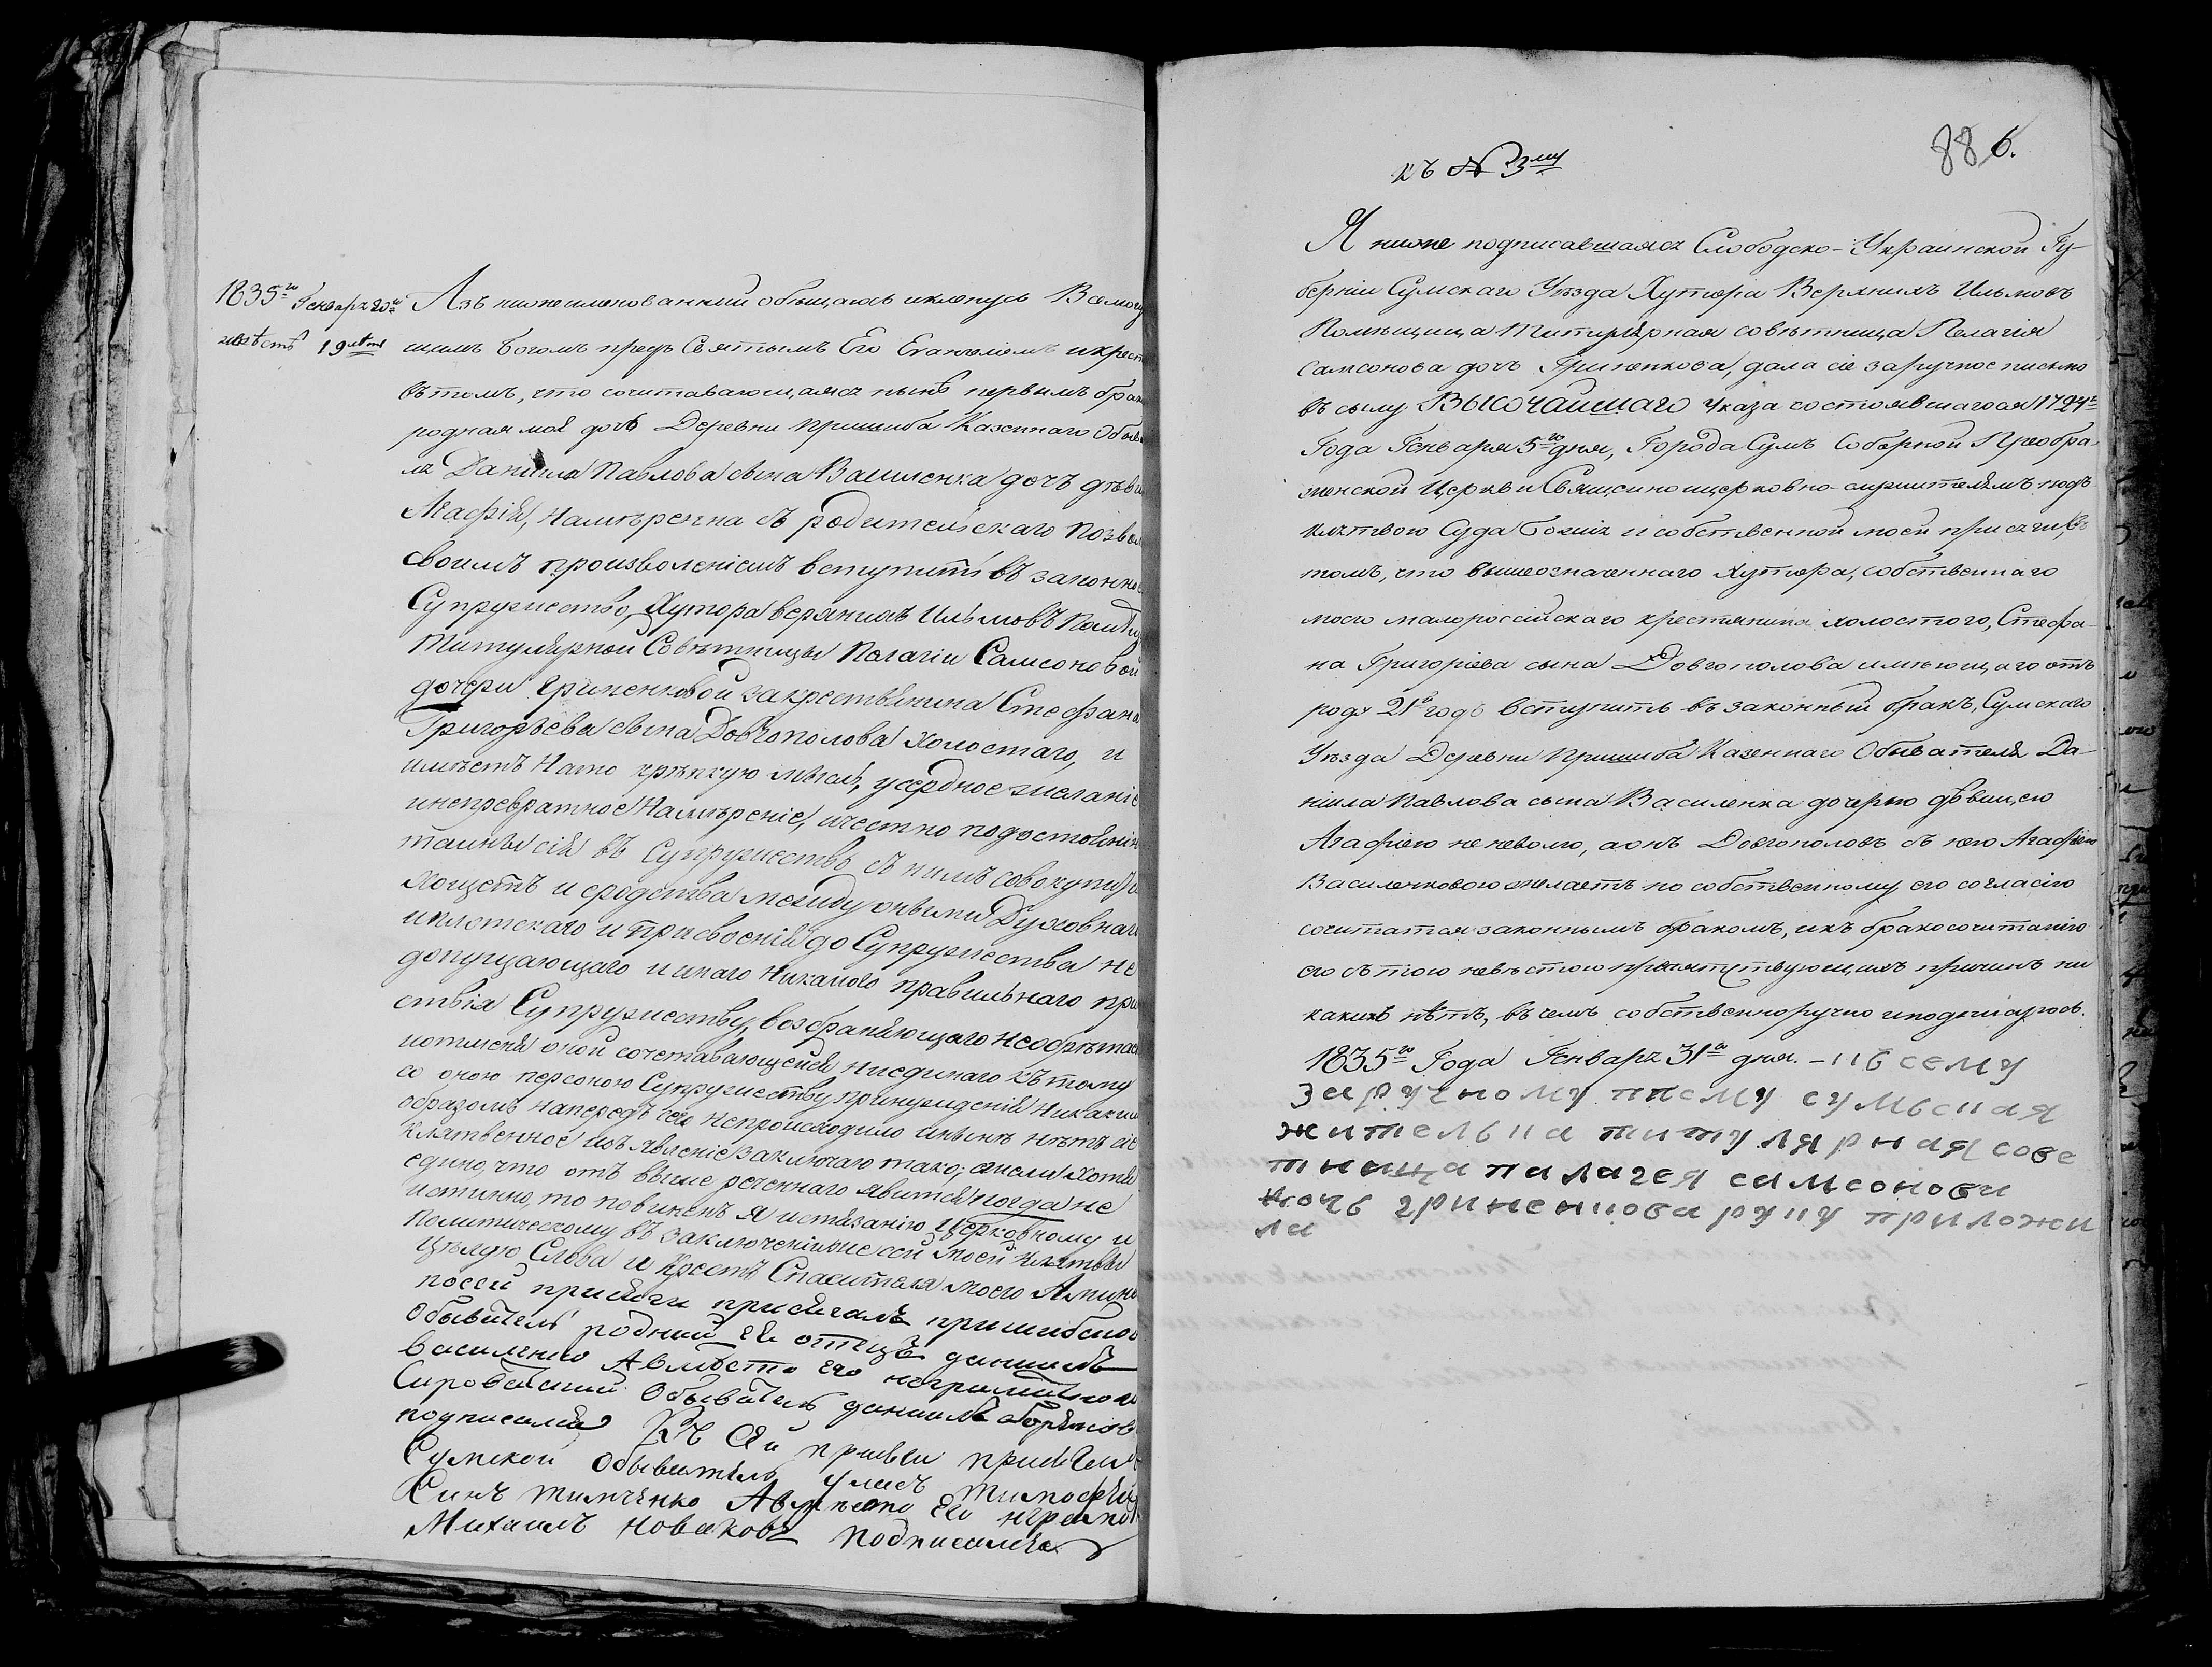 1835го Генваря 20го
невѣстѣ 19 лѣтъ
Азъ нижеименованный обѣщаюсь и кленусь Всемогу
щимъ Богомъ предъ Святымъ Его Еvангелiемъ и крест
въ томъ, что сочитавающаяся нынѣ первымъ брак
родная моя дочь Деревни Пришиба Казеннаго Обыв
ля Данiила Павлова сына Василенка дочь дѣви
Агафiя, намѣренна съ родительскаго позвол
своимъ произволенiемъ вступить въ законное
Супружество, Хутора Верхнихъ Ильмовъ Помѣщ
Титулярной Совѣтницы Пелагiи Самсоновой
дочери Гриненковой за крестьянина Стефана
Григорьева сына Довгополова холостаго, и
имѣетъ на то крѣпкую мысль, усердное желанiе
и непревратное намѣренiе, и честно по достоянiю
тайны сiя въ Супружествѣ съ нимъ совокупит
хощетъ и сродства между оными Духовнаго
и плотскаго и присвоенiя до Супружества не
допущающаго и инаго никакого правильнаго пре
ствiя Супружеству возбраняющаго необрѣтае
и отмсня оной сочетавающейся ни единаго къ тому
со оною персоною Супружеству принужденiя никаким
образомъ напередъ сего непроисходило и нынѣ нѣтъ сiе
клятвенное изъявленiе заключаю тако; ежели хотя
едино, что отъ выше реченнаго явится когда не
истинно, то повиненъ я истязанiю Церковному и
Политическому въ заключенiи же сей моей клятвы
цѣлую Слова и Крестъ Спасителя моего Аминь
по сей присяги присягалъ пришибской
Обыватель родный ея отецъ данiилъ
василенко А вмѣсто его неграмотнаго
Сироватский Обыватель даниилъ
подписался Къ сей присяги присягалъ
Сумской обыватель Тимофей
Синъ тимченко А вмѣсто его неграмо
Михаилъ новаковъ подписался

къ № 3му
88 6.
Я ниже подписавшаяся Слободско-Украинской Гу-
бернiи Сумскаго Уѣзда Хутора Верхнихъ Ильмовъ
Помѣщица Титулярная совѣтница Пелагiя
Самсонова дочь Гриненкова, дала сiе заручное письмо
въ силу Высочайшаго Указа состоявшагося 1724го
Года Генваря 5го дня, Города Сумъ Соборной Преобра-
женской Церкви Священноцерковно-служителямъ подъ
клятвою Суда Божiя и собственной моей присяги, въ
томъ, что вышеозначеннаго Хутора, собственнаго
моего малороссiйскаго крестянина холостого, Стефа-
на Григорiева сына Довгополова имѣющаго отъ
роду 21й годъ вступить въ законный бракъ, Сумскаго
Уѣзда Деревни Пришиба Казеннаго Обывателя Да-
нiила Павлова сына Василенка дочерью дѣвицею
Агафiею не неволю, а онъ Довгополовъ съ нею Агафiею
Василенковою желаетъ по собственному его согласiю
сочитатся законнымъ бракомъ, и къ бракосочитанiю
его съ тою невѣстою препятствующихъ причинъ ни
какихъ нѣтъ, въ чемъ собственноручно и подпишусь.
1835го Года Генваря 31го дня. - къ сему
заручному писму сумьская
жителька титулярная сове
тница палагея самсонова
дочь гриненкова руку приложи
ла